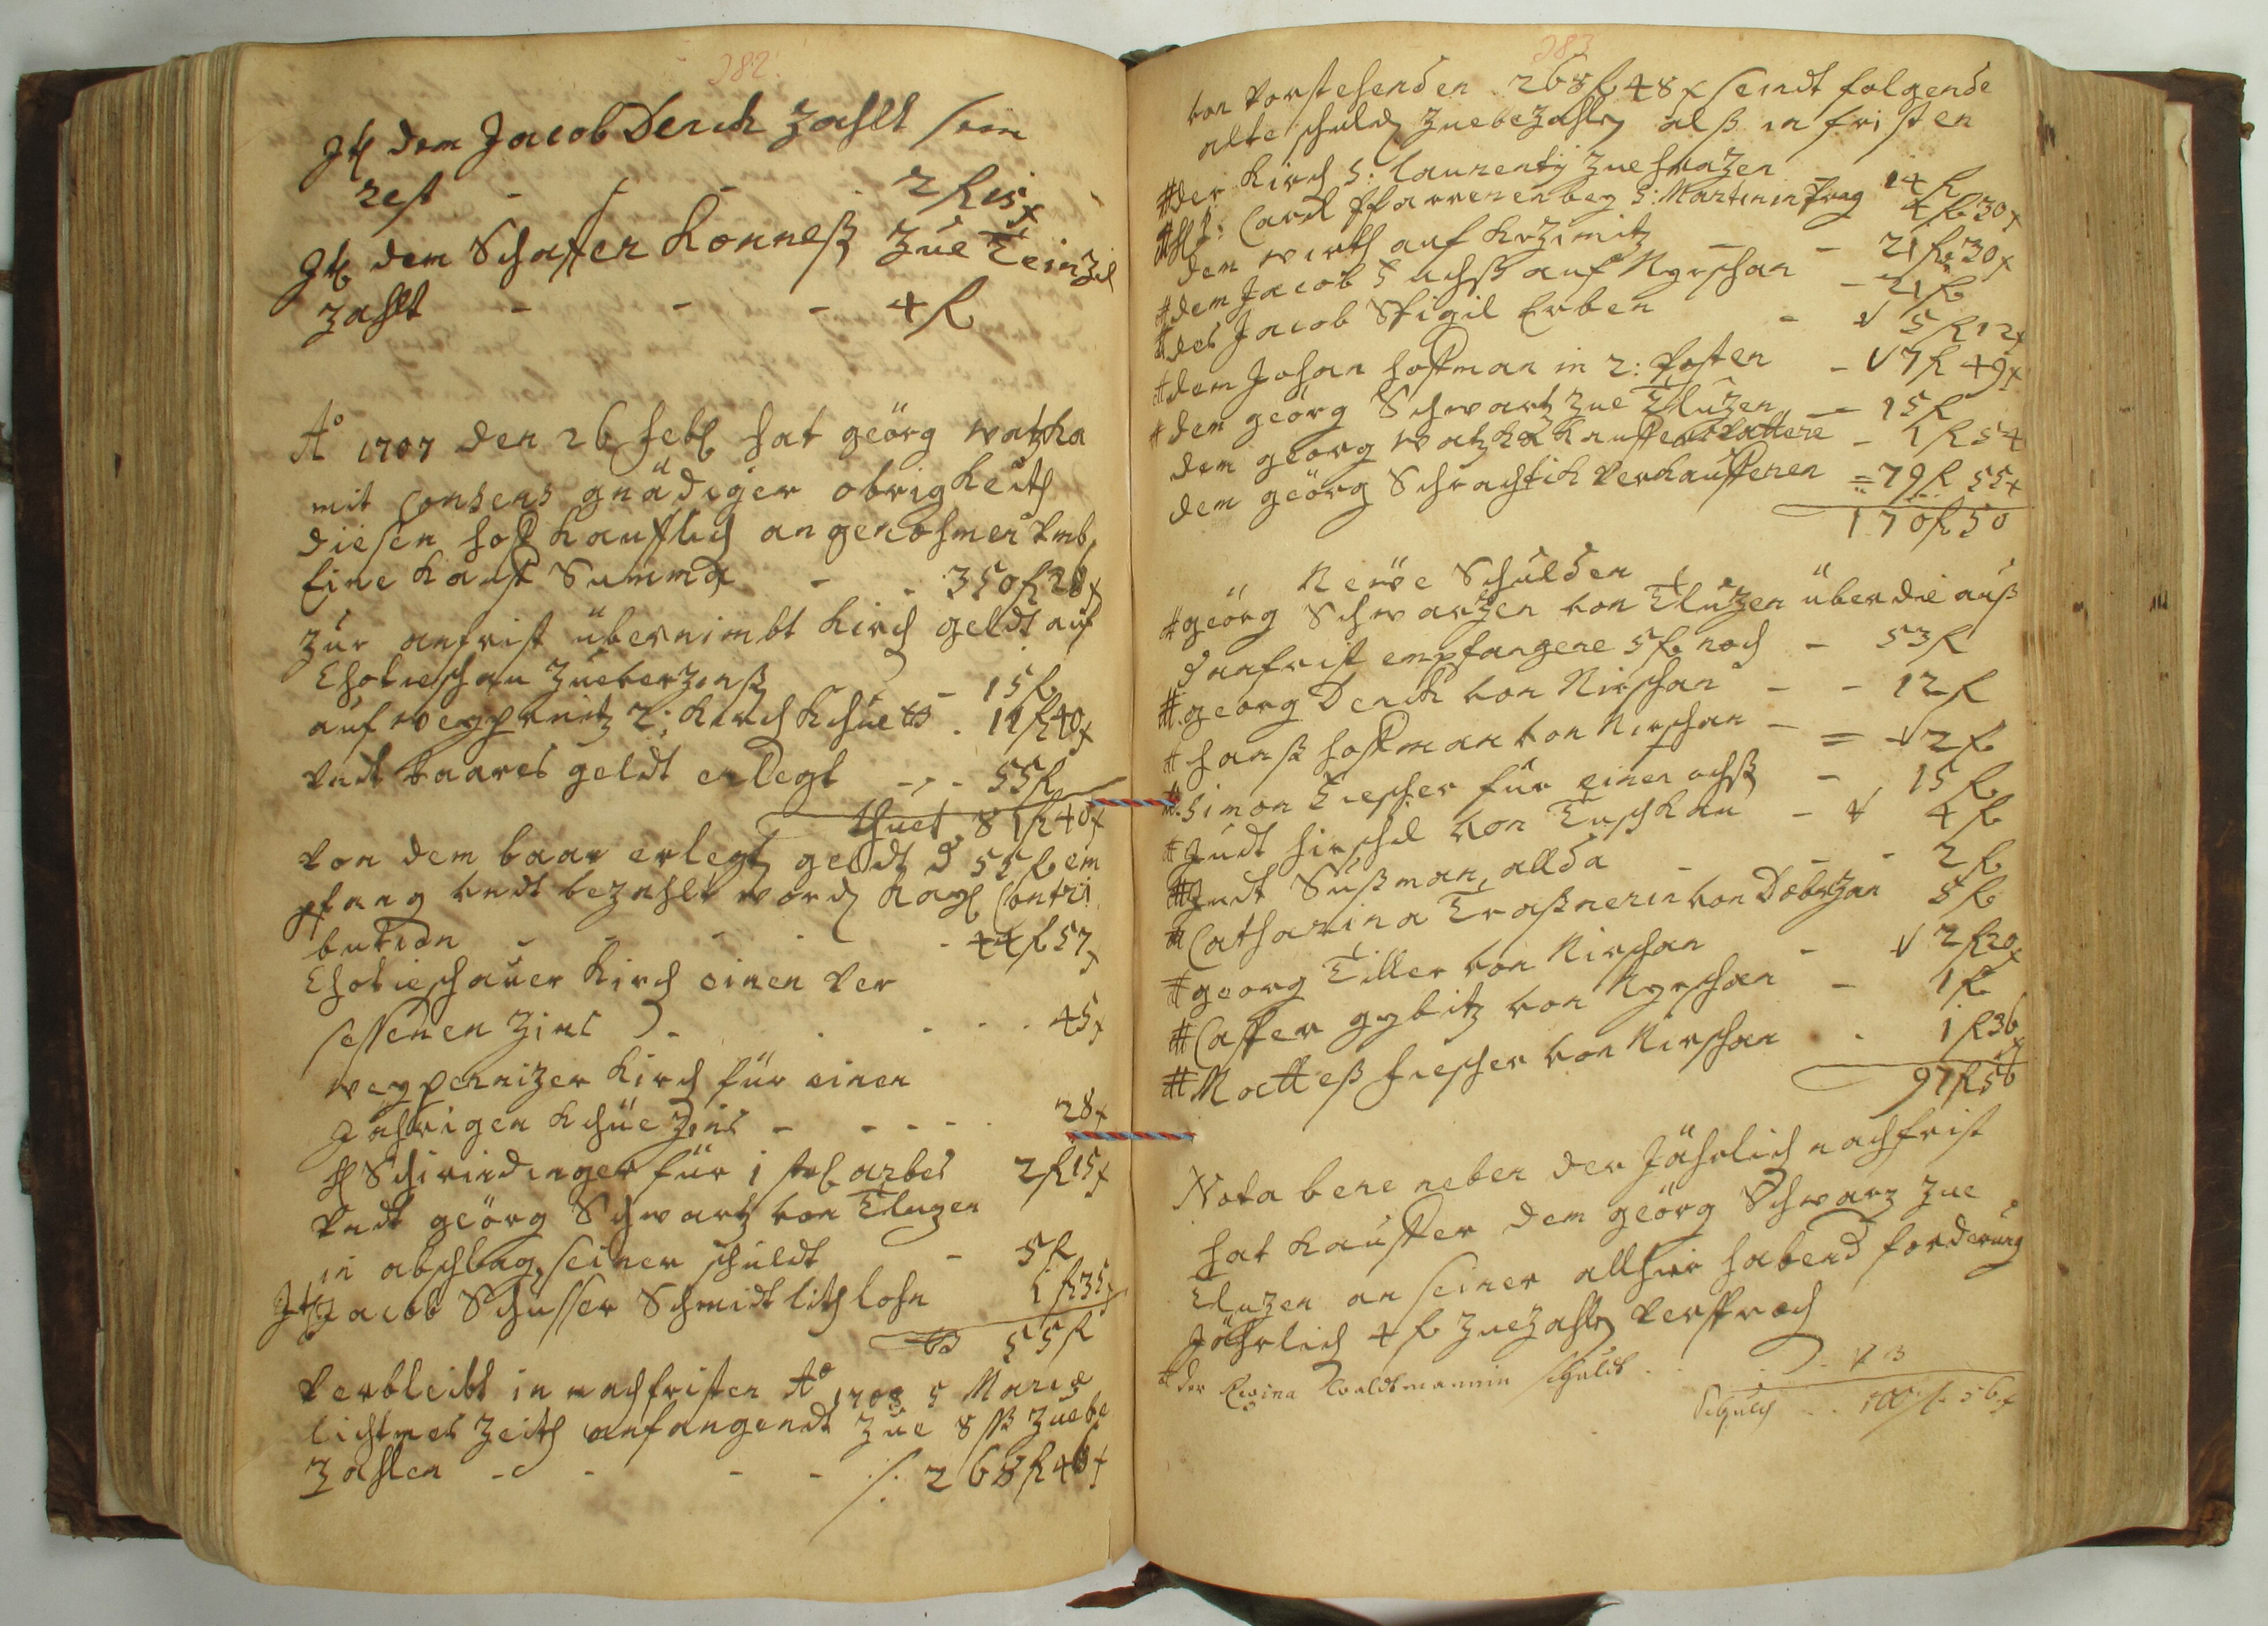 282.
Itē dem Jacob Denck zahlt sein
rest - - - 2 fl 15 x
Itē dem Schaffer Konneß zue Teinzl
zahlt - - - 4 fl
Aō 1707 den 26 Feb hat geörg watzka
mit Consens gnädiger obrigkeith
diesen hoff kaufflich angenohmen umb
Eine kauff Summa - - 350 fl 28 x
zur anfrist übernimbt kirch geldt auf
Chotieschau zueverzinß - 15 fl
auf weyprnitz 2: kirch khüe . 11 fl 40 x
undt baares geldt erlegt - - - 55 fl
thuet 81 fl 40 x
von dem baar erlegt geldt d 55 fl em
pfang undt bezahlt word Kay Contri
bution - - - - 44 fl 57 x
Chotieschauer kirch einen ver
sessenen Zins - - - 45 x
weypernizer kirch für einen
Jahrigen khüe Zins - - - 28 x
H Schirndinger für 1 str arbes 2 fl 15 x
undt geörg Schwartz von Tluzen
in abschlag seiner schuldt - 5 fl
Itē Jacob Schusser Schmidt lith lohn 1 fl 35 x
55 fl
Verbleibt in nachfristen Aō 1708 Maria
lichtmes Zeith anfangendt zue 8 ß zuebe
zahlen - - - - /. 268 fl 48 x
283
von vorstehenden 268 fl 48 x seindt folgende
alte schuld zuebezahl alß in fristen
der kirch S: Laurentÿ zue 14 fl
H P: Carl Pfarrern bey S: Martin in Prag 4 fl 30 x
dem wirth auf krzimitz - - 21 fl 30 x
dem Jacob Fuchß auf Nyrschan - 21 fl
des Jacob Stigil Erben - 5 fl 12 x
dem Johan hoffman in 2: Posten - 7 fl 49 x
dem georg Schwartz zue Tluzen - 15 fl
dem georg watzka kauffers vattere - 1 fl 54
dem geörg Schrachtick Verkaufferen = 79 fl 55 x
170 fl 50
Neüe Schulden
geörg Schwartzen von Tluzen über die auß
d anfrist empfangene 5 fl noch - 53 fl
georg Denck von Nirschan - - 12 fl
hanß hoffman von Nirschan - = 2 fl
Simon Tiescher für einen ochß - 15 fl
Judt hirschl von Tuschkau - 4 fl
Judt Sußman, allda - - 2 fl
Catharina Traßnerin von Dobrzan 5 fl
georg Tiller von Nirschan - 2 fl 20 x
Casper gybitz von Nyrschan - 1 fl
Matteß Fiescher von Nirschan . 1 fl 36 x
97 fl 56
Nota bene neben der Jährlich nachfrist
hat kauffer dem geörg Schwarz zue
Tluzen an seiner allhier habend forderung
Jährlich 4 fl zuezahl versproch
der Regina Waldtmannin schuldt . . . 3
100 fl 56 x